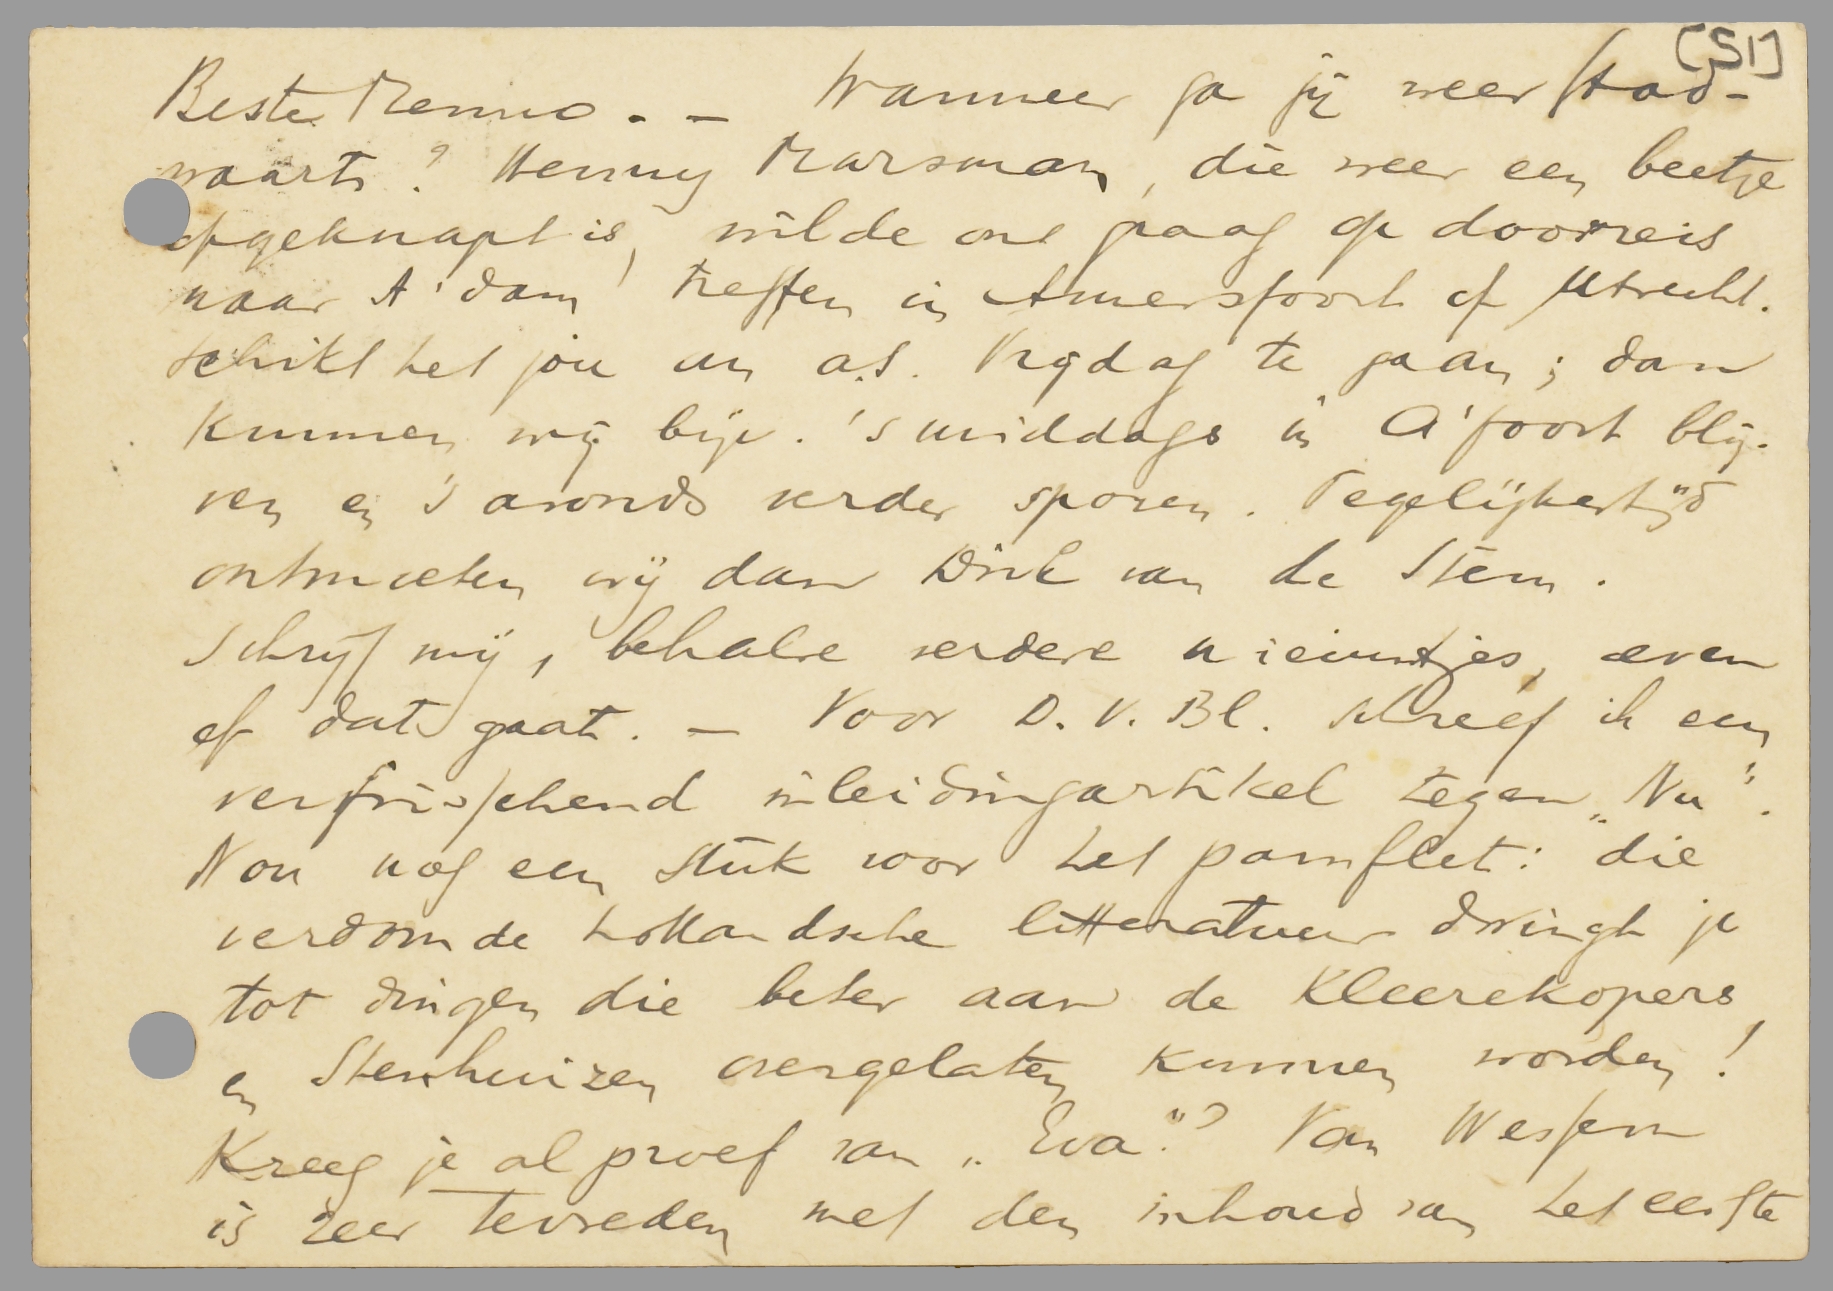 [51]
Beste Menno. — Wanneer ga jij weer stad-
waarts? Henny Marsman, die weer een beetje
opgeknapt is, wilde ons graag op doorreis
naar A'dam treffen in Amersfoort of Utrecht.
Schikt het jou om a.s. Vrijdag te gaan; dan
kunnen wij bijv. 's middags in A'foort blij-
ven en 's avonds verder sporen. Tegelijkertijd
ontmoeten wij dan Dirk van de Stem.
Schrijf mij, behalve verdere nieuwtjes, even
of dat gaat. — Voor D. V. Bl. schreef ik een
verfrisschend inleidingartikel tegen „Nu".
Nou nog een stuk voor het pamflet: die
verdomde hollandsche litteratuur dwingt je
tot dingen die beter aan de Kleerekopers
en Stenhuizen overgelaten kunnen worden!
Kreeg je al proef van „Eva"? Van Wessem
is zeer tevreden met den inhoud van het eerste